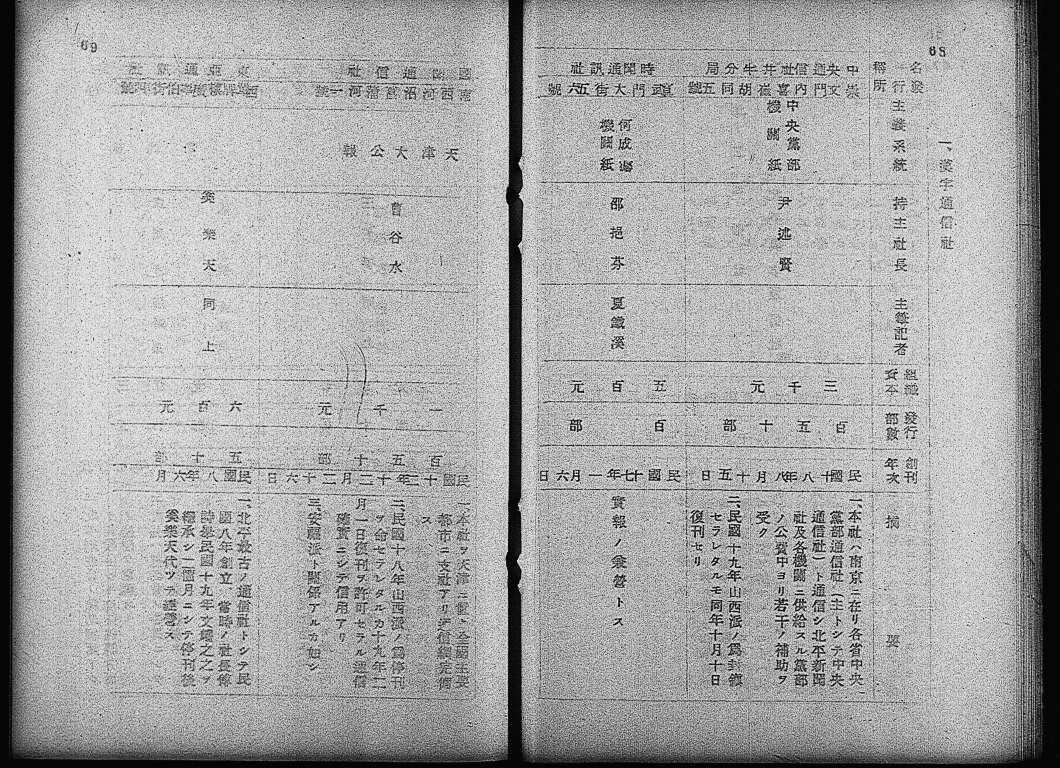 68
一、漢字通信社
名稱
發行所
主義系統
持主社長
主筆記者
組織資本
發行部數
創刊年次
摘要
中央通信社北平分局
崇文門內喜崔胡同五號
中央黨部
機關紙
尹述賢
三千元
百五十部
民國十八年八月十五日
一、本社ハ南京ニ在リ各省中央、
黨部通信社(主トシテ中央
通信社)ト通信シ北平新聞
社及各機關ニ供給スル黨部
ノ公費中ヨリ若干ノ補助ヲ
受ク
二、民國十九年山西派ノ爲封鎖
セラレタルモ同年十月十日
復刊セリ
時聞通訊社
宣武門大街五六號
何成濬
機關紙
邵挹芬
夏鐵溪
五百元
百部
民國十七年一月六日
實報ノ兼營トス
69
國聞通信社
南河沿
天津大公報
曾谷水
一千元
百五十部
民國十三年十二月二十六日
一、本社ヲ天津ニ置ト全國主要
都市ニ支社アリテ信網完備
ス
二、民國十八年山西派ノ爲停刊
ヲ命セラレタルカ十九年二
月一日復刊ヲ許可セラル通信
確實ニシテ信用アリ
三、安福派ト關係アルカ如シ
東亞通訊社
奚樂天
同上
六百元
五十部
民國八年六月
一、北平最古ノ通信社トシテ民
國八年創立、當時ノ社長
時
民國十九年
之ヲ
繼承シ一個月ニシテ停刊後
奚樂天代ツテ經營ス